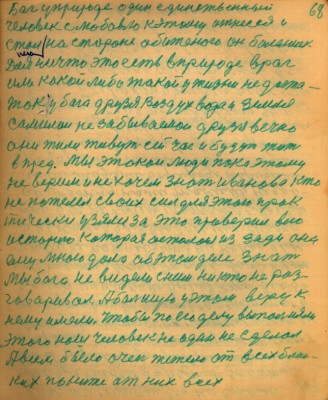 68
Бог у природе один единственный
человек с любовью к этому отнесся и
стал на стороне обиженого он больному
для ничто это есть в природе враг
или какой либо такой у жизни не доста-
ток у бога друзья воздух вода и земля
самыми не забываемой друзья вечно
они жили живут сичас и будут жит
в пред. Мы этокои люди пока этому
не верим и не хочем знат Иванова кто
не пожелел своих сил для этого прак
тически узялся за это проверил всю
историю которая осталося из зади она
ему много дала об этом деле знат
Мы бога не видели с ним никто не раз-
говаривал. А большую у этом веру к
нему имели. Чтобы по его делу выполняли
этого наш человек не один не сделал
А всем было очен тяжело от всех бли-
ких по ниже от них всех